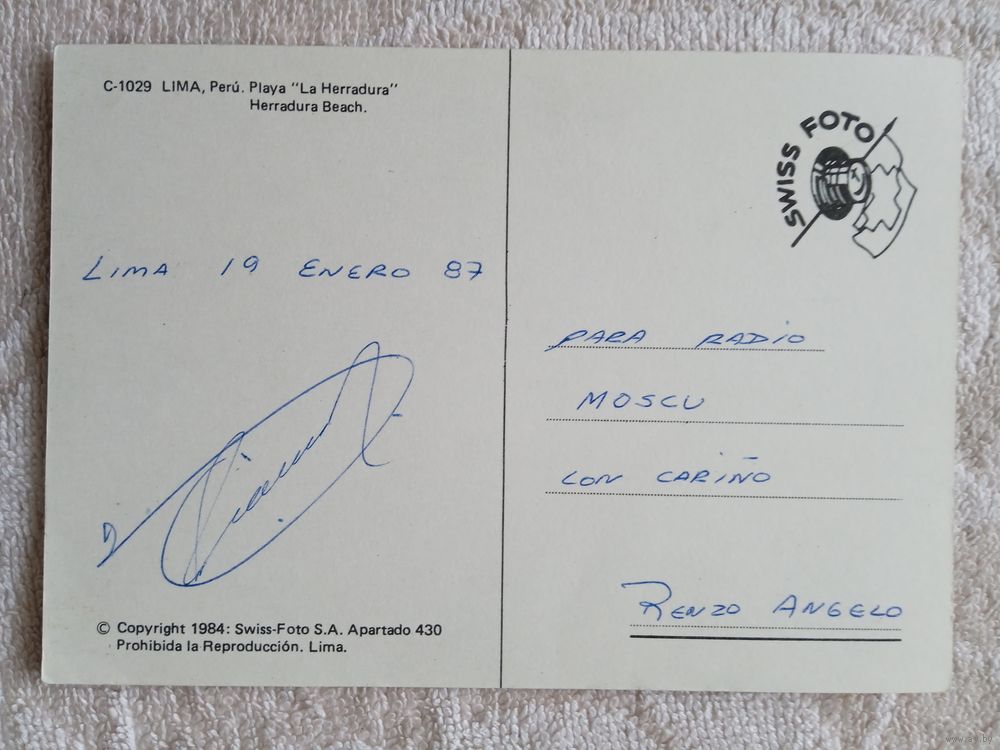 C-1029 LIMA, Perú. Playa "La Herradura"
Herradura Beach.
SWISS FOTO
LIMA 19 ENERO 87
PARA RADIO
MOSCU
CON CARIÑO
RENZO ANGELO
© Copyright 1984: Swiss-Foto S.A. Apartado 430
Prohibida la Reproducción. Lima.
www.ay.by